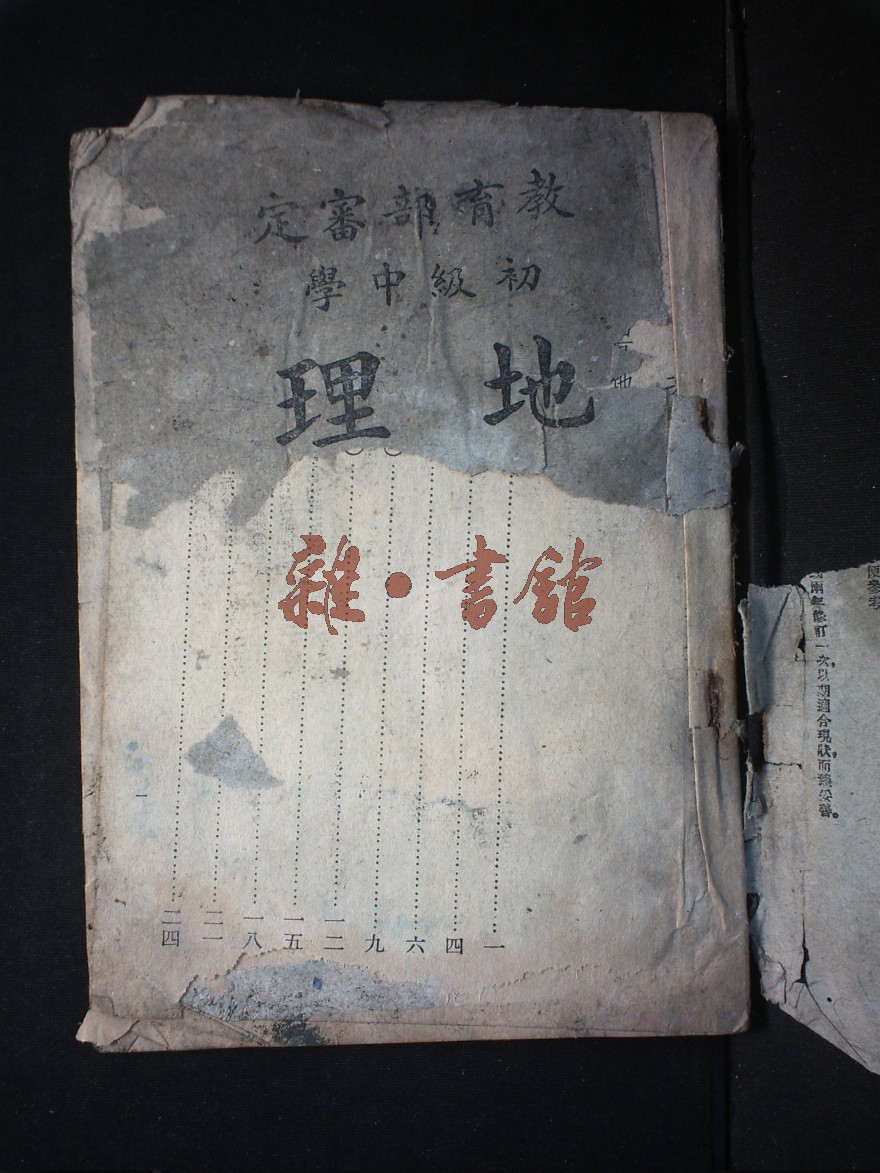 教育部審定
初級中學
地理
雜·書館
一
四
六
九
一二
一五
一八
二一
二四
一
兩年修訂一次，以期適合現狀，而臻妥善。